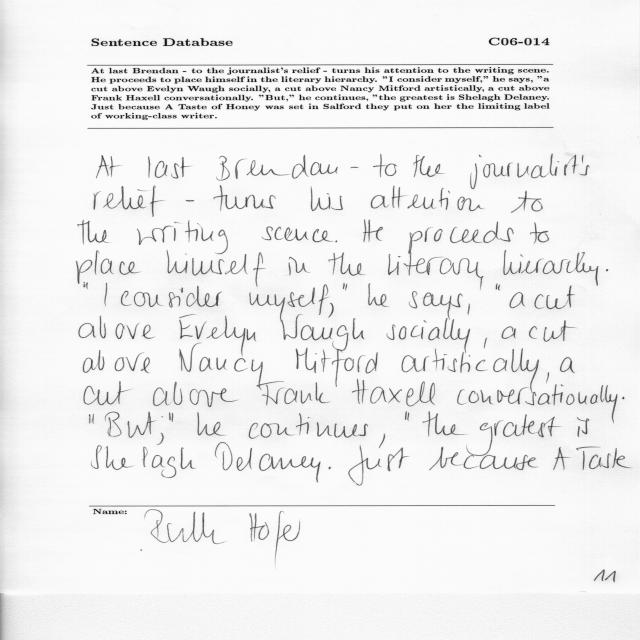 Sentence Database C06-014
At last Brendan - to the journalist's relief - turns his attention to the writing scene.
He proceeds to place himself in the literary hierarchy. "I consider myself," he says, "a
cut above Evelyn Waugh socially, a cut above Nancy Mitford artistically, a cut above
Frank Haxell conversationally. "But," he continues, "the greatest is Shelagh Delaney.
Just because A Taste of Honey was set in Salford they put on her the limiting label
of working-class writer.
At last Brendan - to the journalist's
relief - turns his attention to
the writing scence. He proceeds to
place himself in the literary hierarchy.
"I consider myself," he says, "a cut
above Evelyn Waugh socially, a cut
above Nancy Mitford artistically, a
cut above Frank Haxell conversationally.
"But," he continues, "the gratest is
Shelagh Delaney. Just because A Taste
Name: Ruth Hofer
11